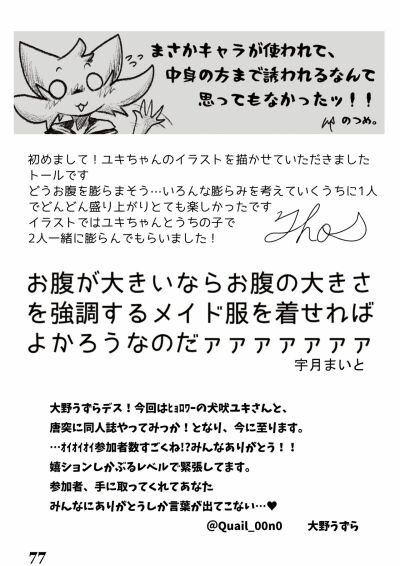 まさかキャラが使われて、
中身の方まで誘われるなんて
思ってもなかったッ！！
のつめ。
初めまして！ユキちゃんのイラストを描かせていただきました
トールです
どうお腹を膨らまそう…いろんな膨らみを考えていくうちに1人
でどんどん盛り上がりとても楽しかったです
イラストではユキちゃんとうちの子で
2人一緒に膨らんでもらいました！
お腹が大きいならお腹の大きさ
を強調するメイド服を着せれば
よかろうなのだァァァァァァァ
宇月まいと
大野うずらデス！今回はﾋｮﾛﾜｰの犬吠ユキさんと、
唐突に同人誌やってみっか！となり、今に至ります。
…ｵｲｵｲｵｲ参加者数すごくね!?みんなありがとう！！
嬉ションしかぶるレベルで緊張してます。
参加者、手に取ってくれてあなた
みんなにありがとうしか言葉が出てこない…♥
@Quail_00n0 大野うずら
77